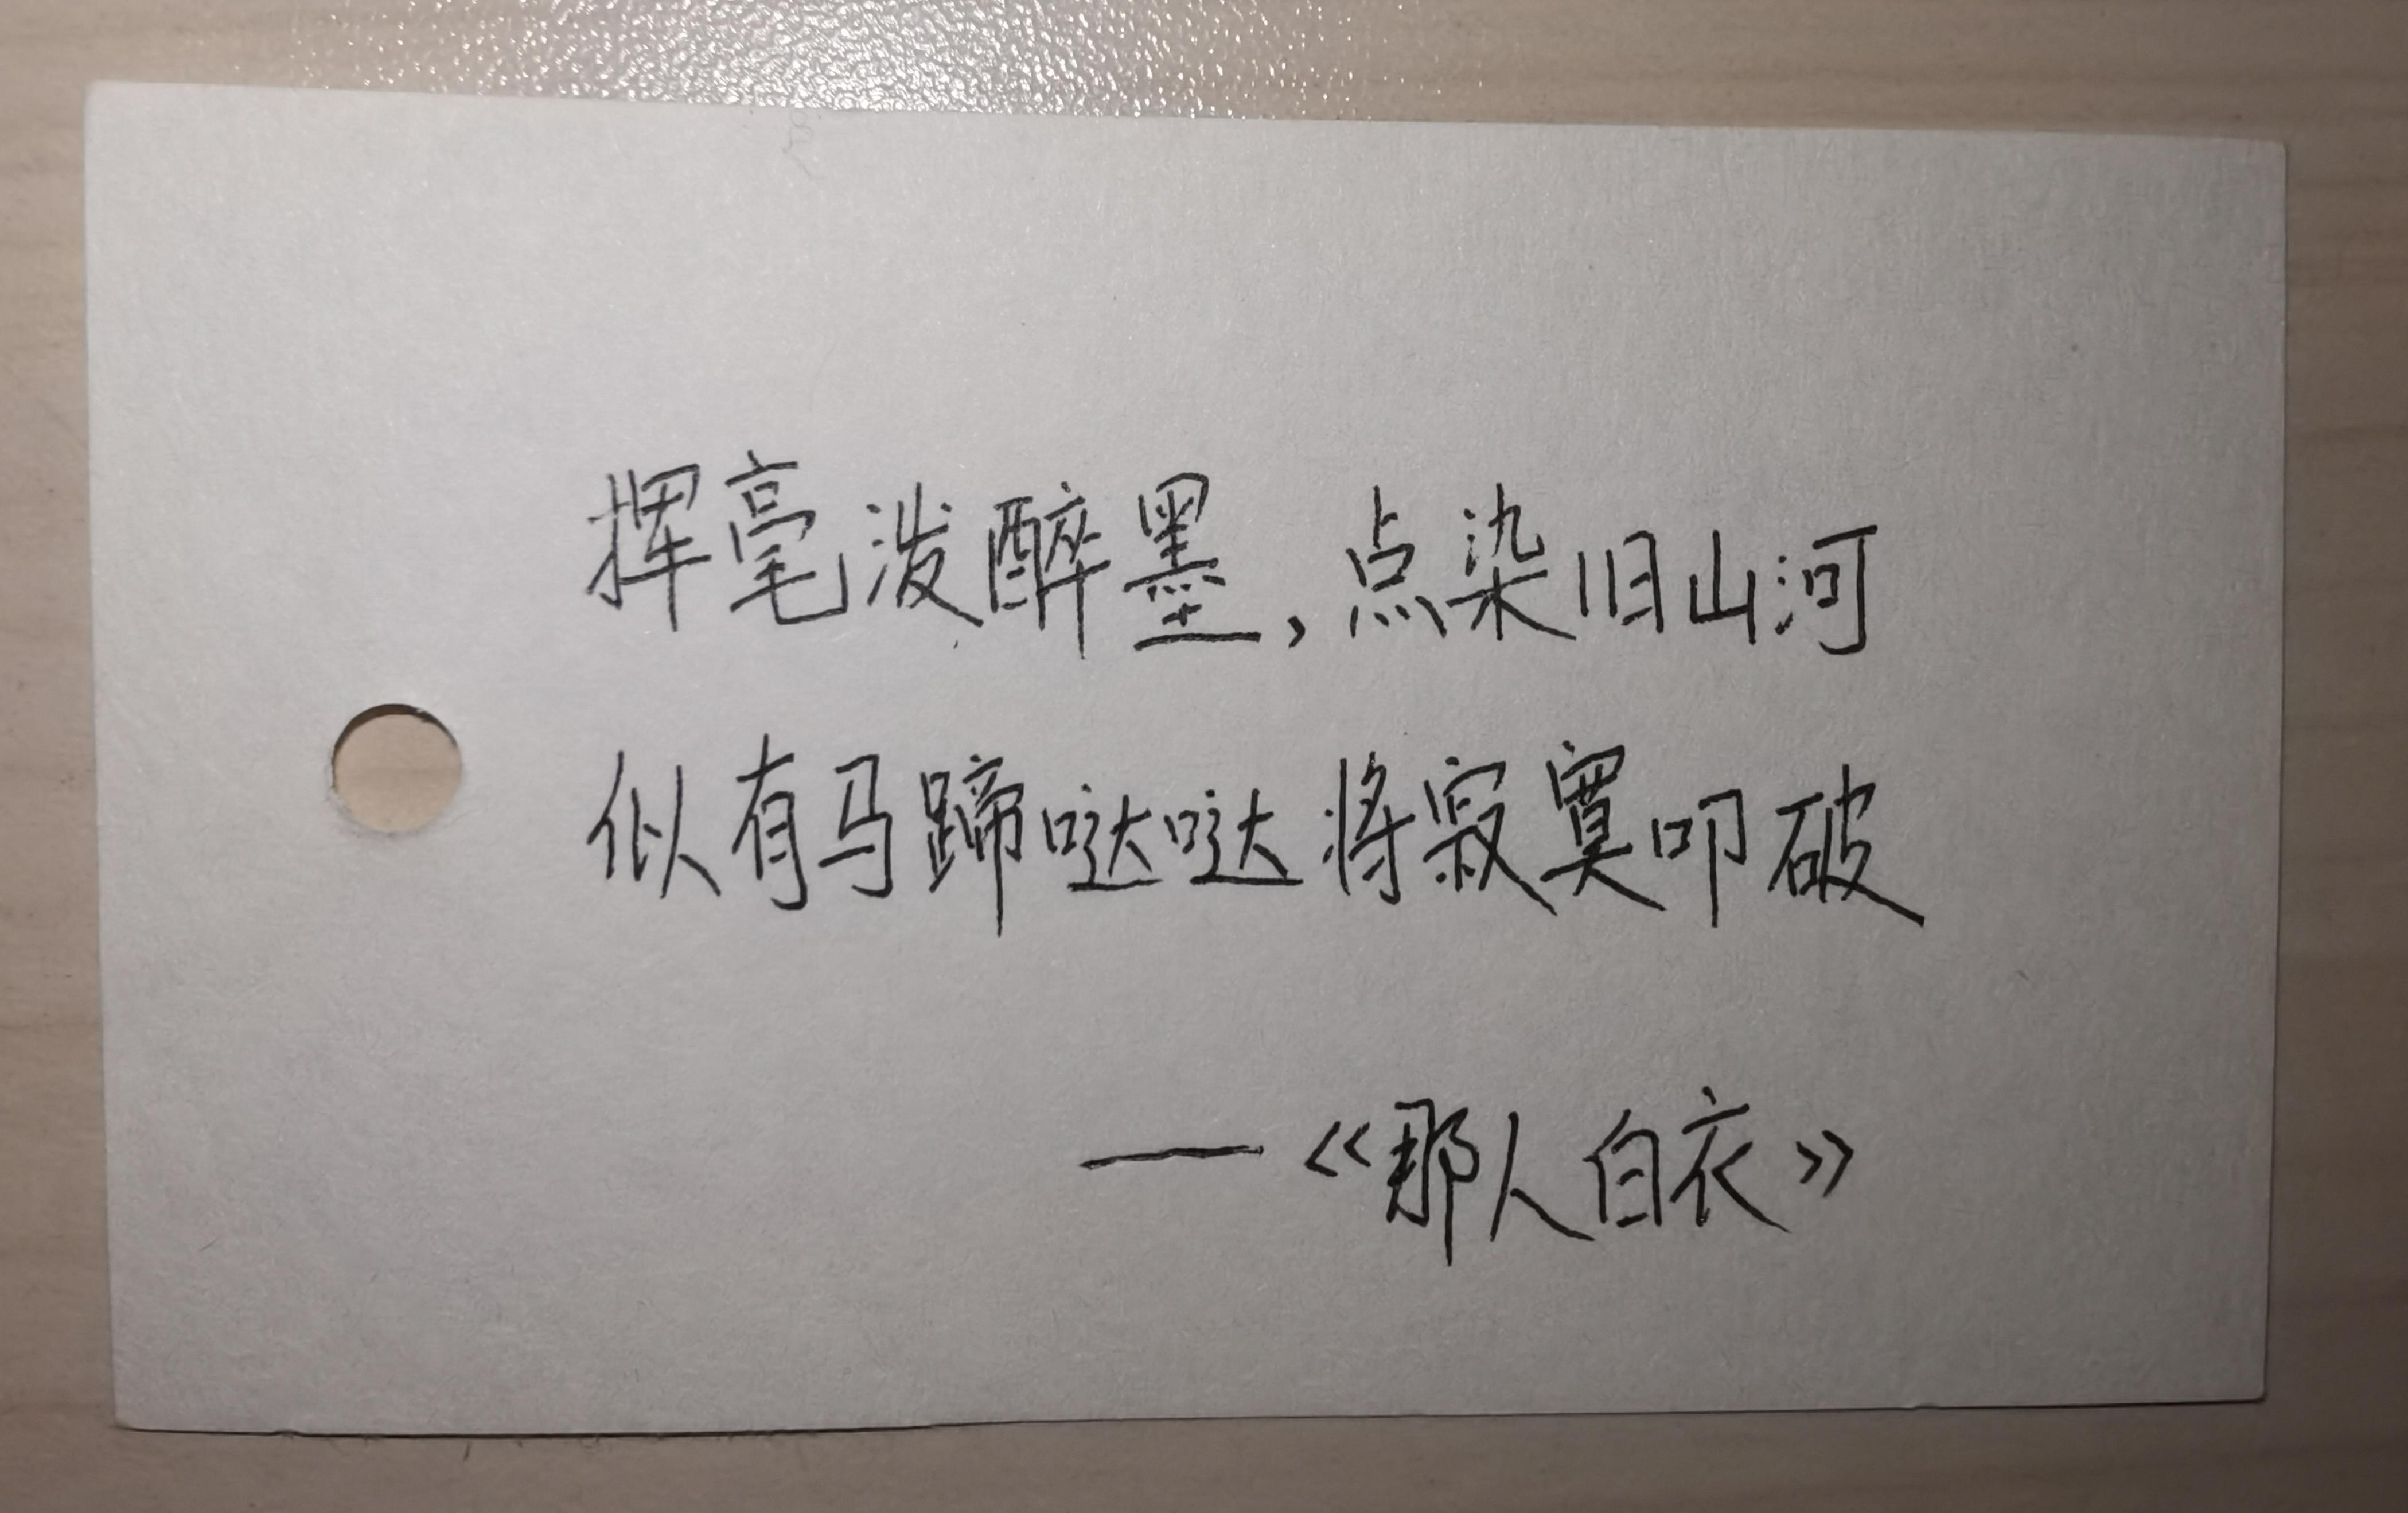 挥毫泼醉墨，点染旧山河
似有马蹄哒哒将寂寞叩破
—《那人白衣》